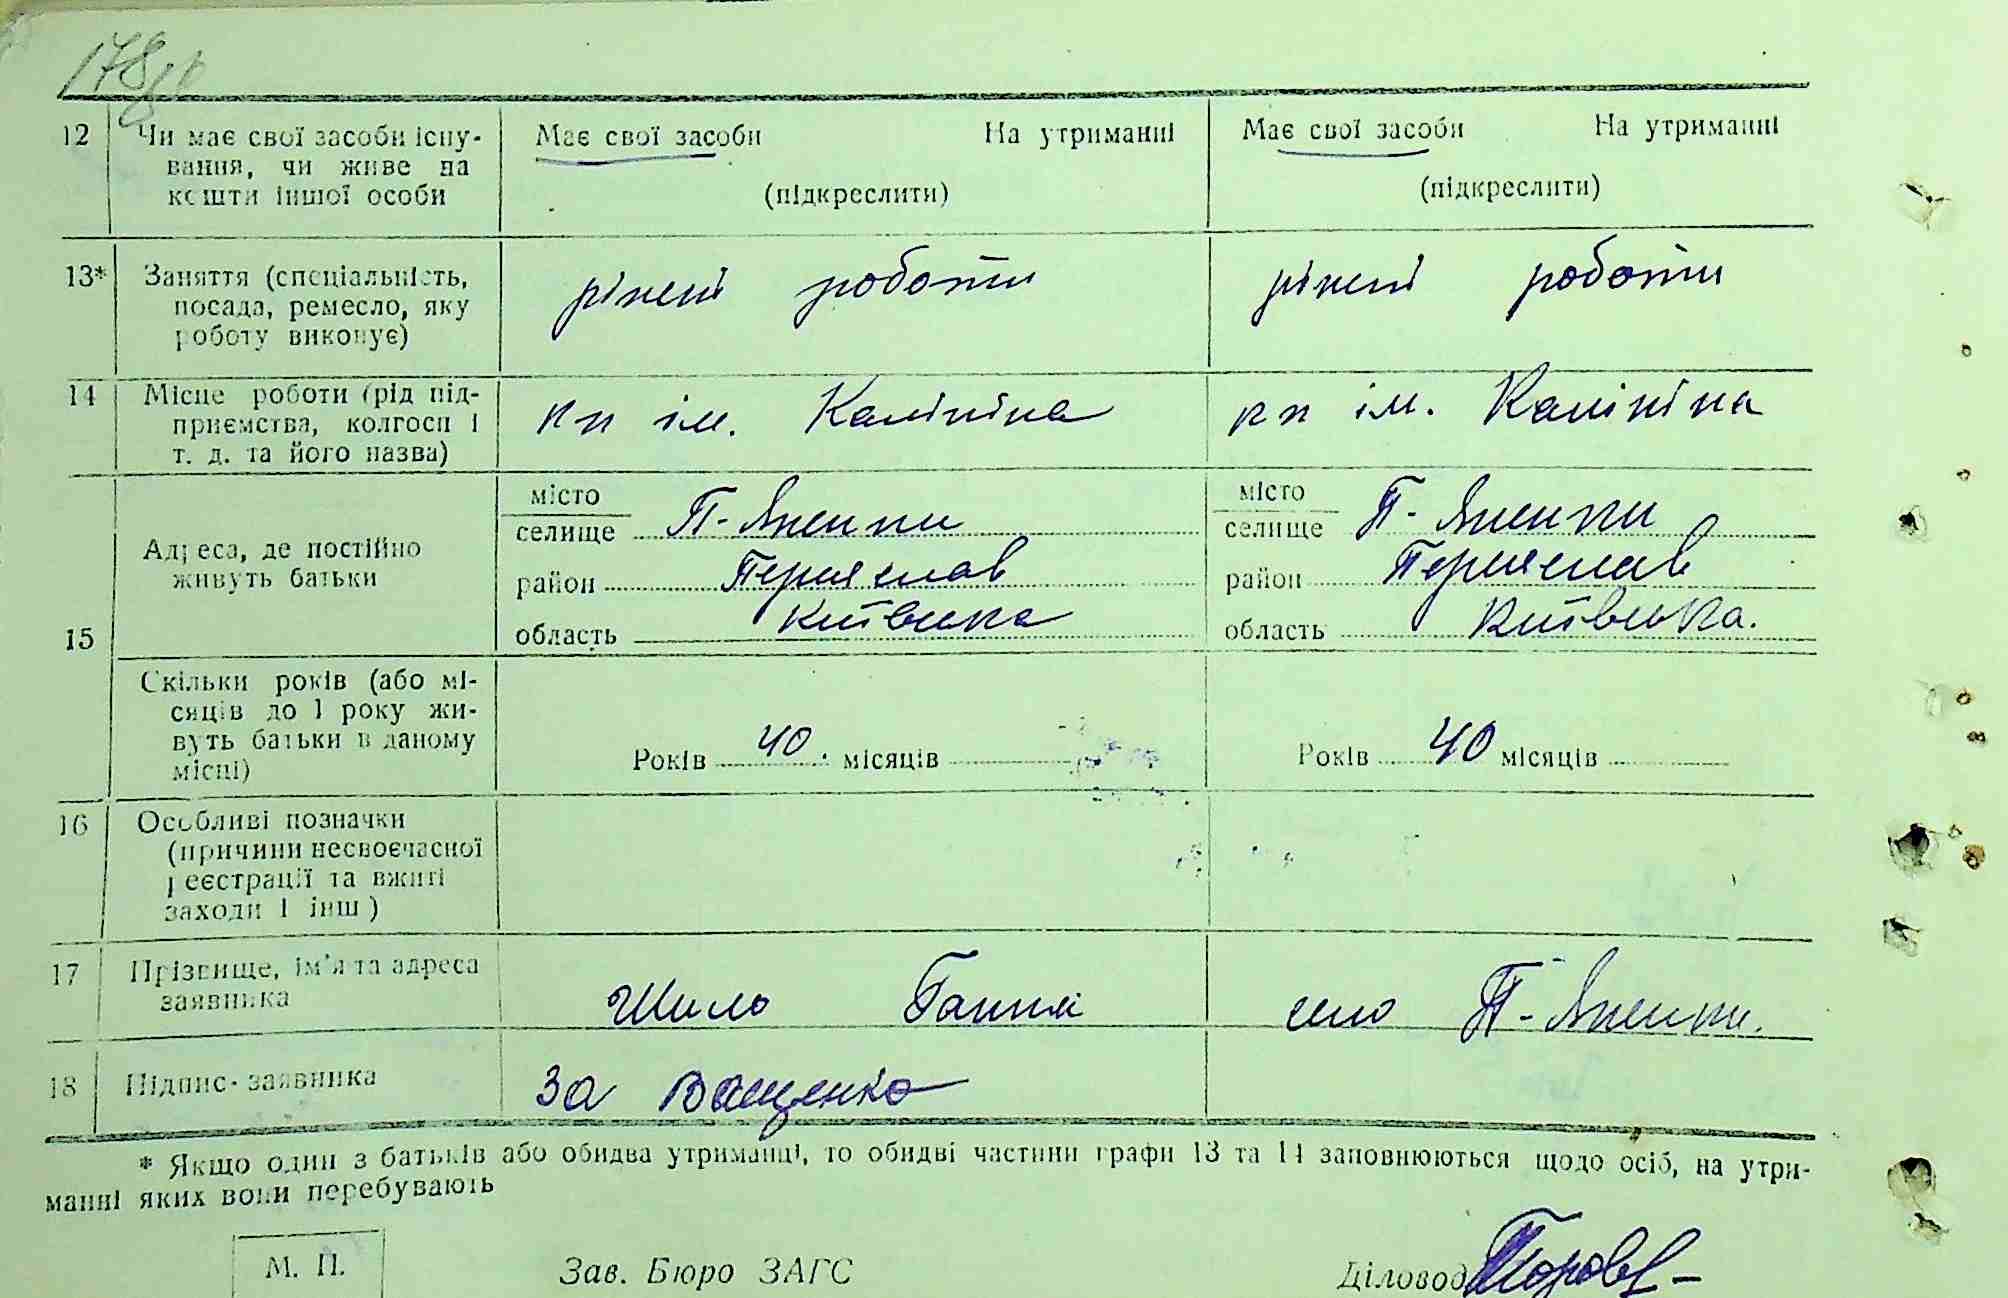 178
12 Чи має свої засоби існу- Має свої засоби На утриманні Має свої засоби На утриманні
вання, чи живе на
кошти іншої особи (підкреслити) (підкреслити)
13* Заняття (спеціальність, різні роботи різні роботи
посада, ремесло, яку
роботу виконує)
14 Місце роботи (рід під- кп ім. Калініна кп ім. Калініна
приємства, колгосп і
т. д. та його назва)
15 Адреса, де постійно живуть батьки
місто
селище П-Яненки
район Переяслав
область Київська
місто
селище П-Яненки
район Переяслав
область Київська.
Скільки років (або мі-
сяців до 1 року жи-
вуть батьки в даному
місці)
Років 40. місяців Років 40 місяців
16 Особливі позначки
(причини несвоєчасної
реєстрації та вжиті
заходи і інш)
17 Прізвище, ім'я та адреса Шило Ганна село П-Яненки.
заявника
18 Підпис заявника За Ващенко
* Якщо один з батьків або обидва утриманці, то обидві частини графи 13 та 14 заповнюються щодо осіб, на утри-
манні яких вони перебувають
М. П. Зав. Бюро ЗАГС Діловод